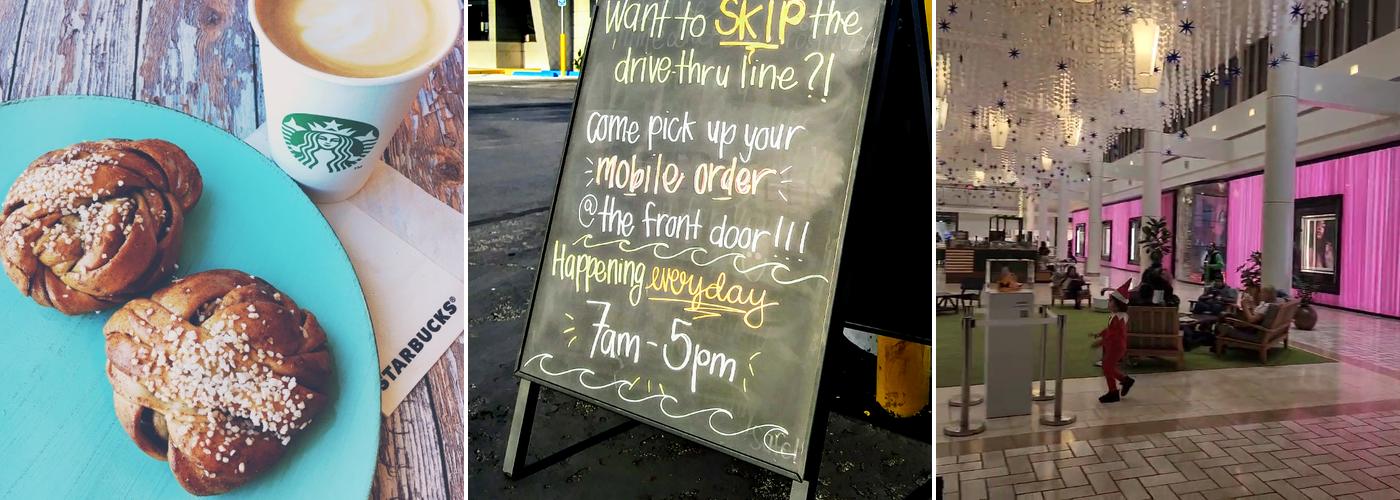 STARBUCKS®
Want to SKIP the
drive-thru line?!
come pick up your
mobile order
@the front door!!!
Happening everyday
7am-5pm